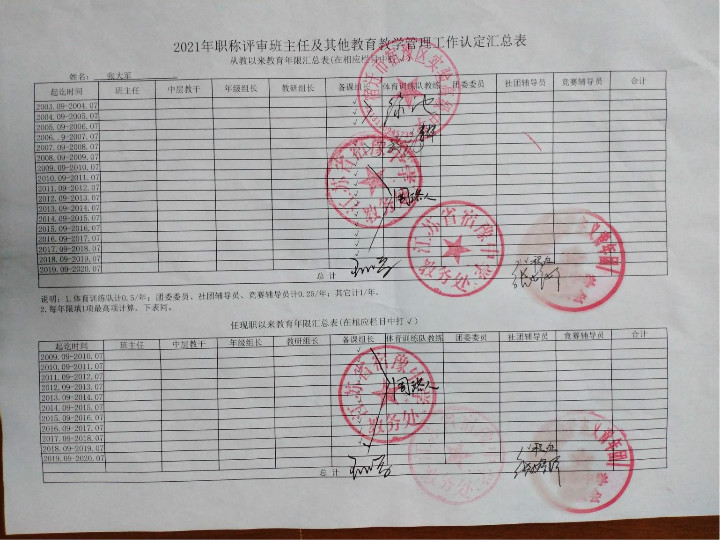 2021年职称评审班主任及其他教育教学管理工作认定汇总表
从教以来教育年限汇总表(在相应栏目中打
姓名： 张大军
起讫时间 班主任 中层教干 年级组长 教研组长 备课组长 体育训练队教练 团委委员 社团辅导员 竞赛辅导员 合计
2003.09-2004.07
2004.09-2005.07
2005.09-2006.07
2006.9-2007.07
2007.09-2008.07
2008.09-2009.07
2009.09-2010.07
2010.09-2011.07
2011.09-2012.07
2012.09-2013.07
2013.09-2014.07
2014.09-2015.07
2015.09-2016.07
2016.09-2017.07
2017.09-2018.07
2018.09-2019.07
2019.09-2020.07
总 计
江苏省宿豫中学
教务处
江苏省宿豫中学
教务处
说明：1.体育训练队计0.5/年；团委委员、社团辅导员、竞赛辅导员计0.25/年；其它计1/年。
2.每年限填1项最高项计算，下表同。
任现职以来教育年限汇总表(在相应栏目中打√)
起讫时间 班主任 中层教干 年级组长 教研组长 备课组长 体育训练队教练 团委委员 社团辅导员 竞赛辅导员 合计
2009.09-2010.07
2010.09-2011.07
2011.09-2012.07
2012.09-2013.07
2013.09-2014.07
2014.09-2015.07
2015.09-2016.07
2016.09-2017.07
2017.09-2018.07
2018.09-2019.07
2019.09-2020.07
总 计
江苏省宿豫中学
教务处